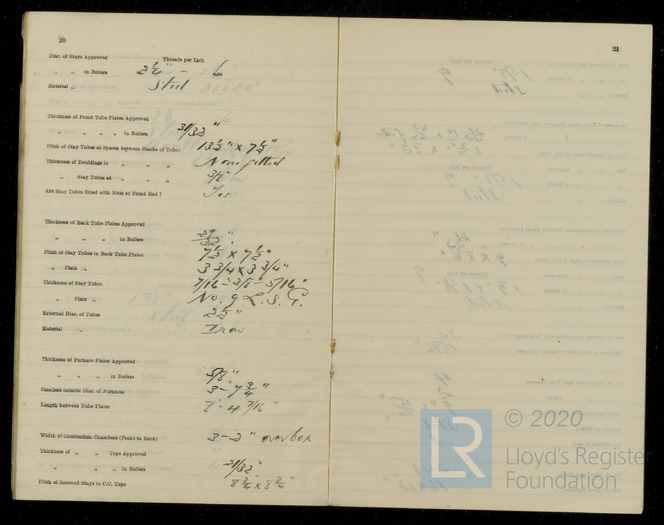 20
Diam. of Stays Approved Threads per Inch
„ „ in Boilers 2¼" - 6
Material „ Steel
Thickness of Front Tube Plates Approved
„ „ „ „ in Boilers 31/32"
Pitch of Stay Tubes at Spaces between Stacks of Tubes 13½" x 7½"
Thickness of Doublings in „ „ „ None fitted
„ Stay Tubes at „ „ „ 3/8"
Are Stay Tubes fitted with Nuts at Front End? Yes
Thickness of Back Tube Plates Approved
„ „ „ in Boilers 29/32"
Pitch of Stay Tubes in Back Tube Plates 7½ x 7½"
„ Plain „ 3 3/4 x 3 3/4"
Thickness of Stay Tubes 7/16 - 3/8 - 5/16"
„ Plain „ No. 9 L.S.G.
External Diam. of Tubes 2½"
Material „ Iron
Thickness of Furnace Plates Approved
„ „ „ in Boilers 5/8"
Smallest outside Diam. of Furnaces 3 - 7¾"
Length between Tube Plates 7 - 4 7/16"
Width of Combustion Chambers (Front to Back) 3 - 2" over box
Thickness of „ „ Tops Approved
„ „ „ in Boilers 21/32"
Pitch of Screwed Stays in C.C. Tops 8¾ x 8¾"
21
LR © 2020
Lloyd's Register
Foundation